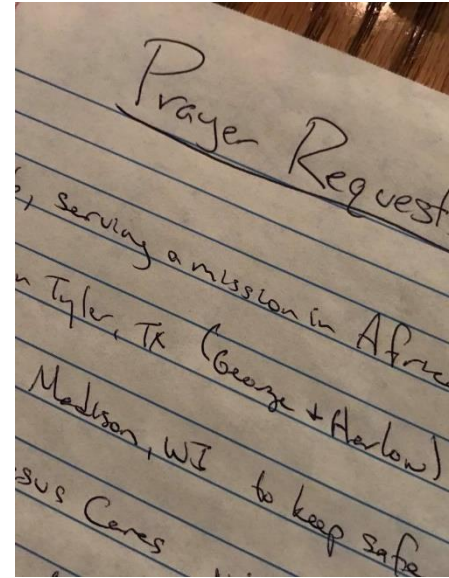 Prayer Request
, serving a mission in Africa
n Tyler, TX (George + Harlow)
Madison, WI to keep safe
sus Cares